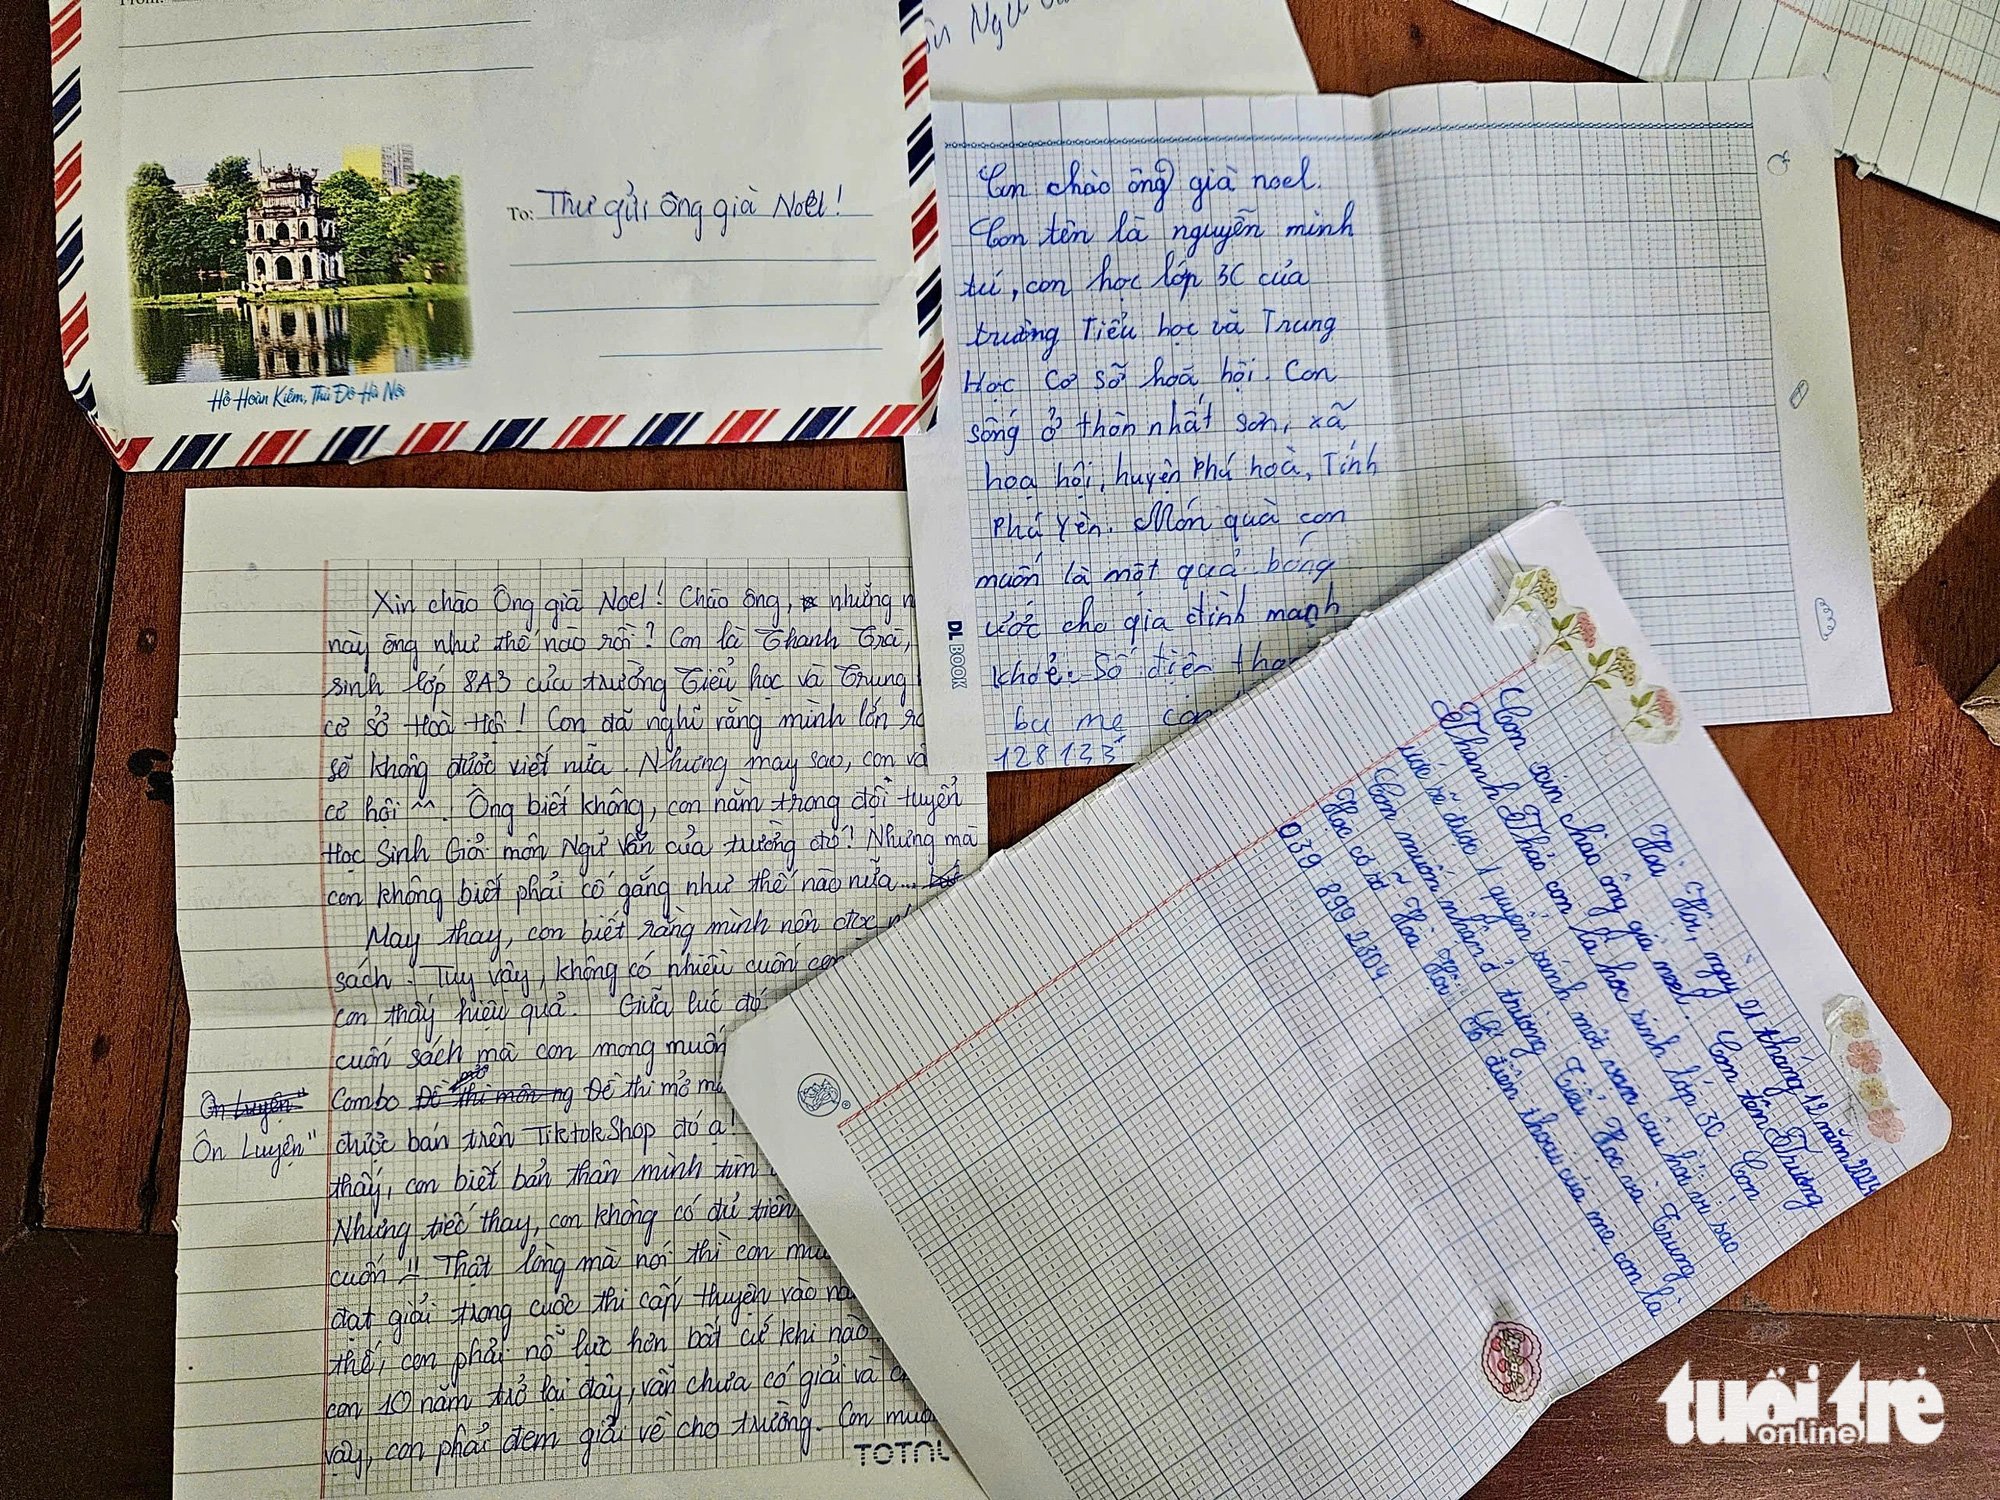 From:
To: Thư gửi Ông già Noel!
Hồ Hoàn Kiếm, Thủ Đô Hà Nội
Con chào ông già noel.
Con tên là nguyễn minh
tú, con học lớp 3C của
trường Tiểu học và Trung
Học Cơ Sỡ hoà hội. Con
sống ở thôn nhất sơn, xã
hoạ hội, huyện Phú hoà, Tỉnh
Phú Yên. Món quà con
muốn là một quả bóng
ước cho gia đình mạnh
khoẻ. Số điện
ba mẹ
128133
DL BOOK
Xin chào Ông già Noel! Chào ông, những
này ông như thế nào rồi? Con là Thanh Trà,
sinh lớp 8A3 của trường Tiểu học và Trung
cơ sở Hoà Hội! Con đã nghĩ rằng mình lớn
sẽ không được viết nữa. Nhưng may sao, con
cơ hội ^^. Ông biết không, con nằm trong đội tuyển
Học Sinh Giỏi môn Ngữ Văn của trường đó! Nhưng mà
con không biết phải cố gắng như thế nào nữa...
May thay, con biết rằng mình nên đọc
sách. Tuy vậy, không có nhiều cuốn
con thấy hiệu quả. Giữa lúc đó
cuốn sách mà con mong muốn
Combo Đề thi mở
Ôn Luyện"
được bán trên TiktokShop đó ạ!
thấy, con biết bản thân mình tìm
Nhưng tiếc thay, con không có đủ tiền
cuốn !! Thật lòng mà nói thì con
đạt giải trong cuộc thi cấp huyện vào
thế, con phải nỗ lực hơn bất cứ khi nào
con 10 năm trở lại đây, vẫn chưa có giải và
vậy, con phải đem giải về cho trường. Con
TOTAL
Hoà Hội, ngày 21 tháng 12 năm 2024
Con xin chào ông già noel. Con tên Trương
Thanh Thảo con là học sinh lớp 3C Con
ước sẽ được 1 quyển sánh một vạn câu hỏi vì sao
Con muốn nhận ở trường Tiểu Học và Trung
Học cơ sở Hoà Hội. Số điện thoại của mẹ con là
039 899 2804
tuổi trẻ
online